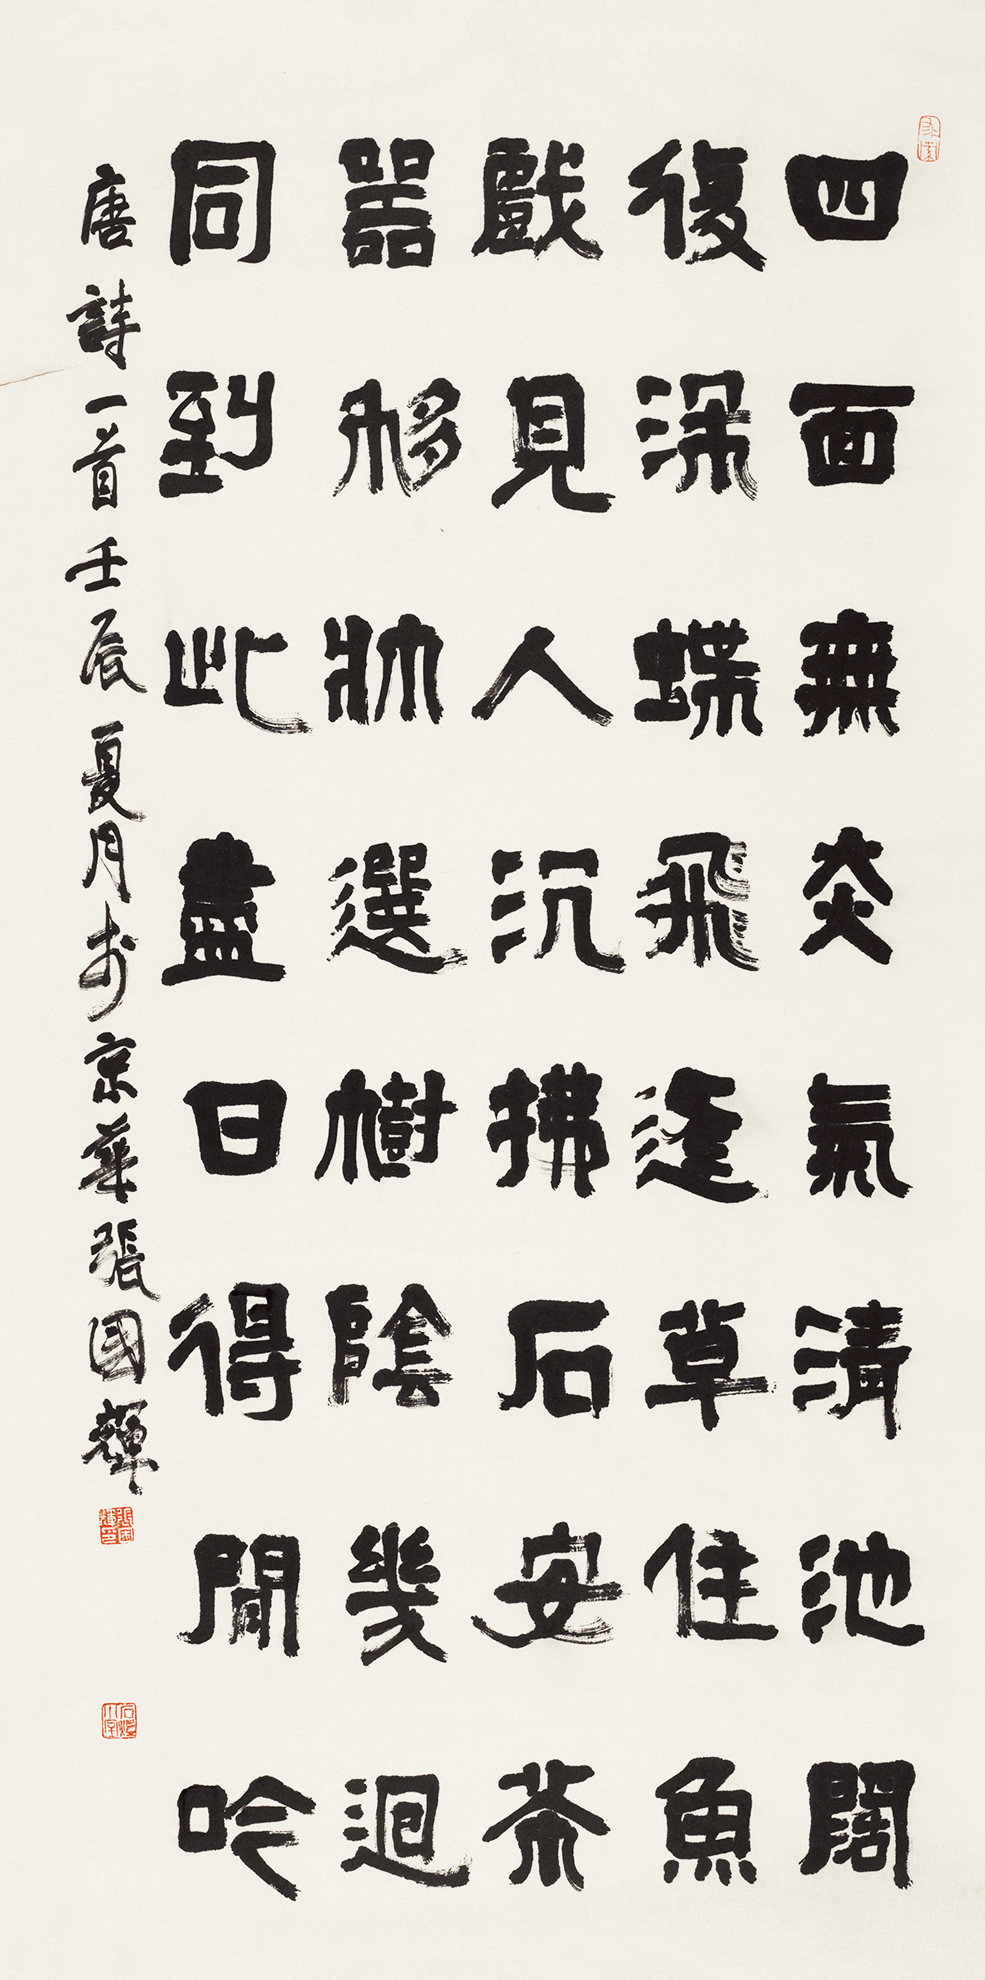 四面無炎氣清池闊
復深蝶飛逢草住魚
戲見人沉拂石安茶
器移牀選樹陰幾迴
同到此盡日得閒吟
唐詩一首壬辰夏月於京華張國輝
張國輝印